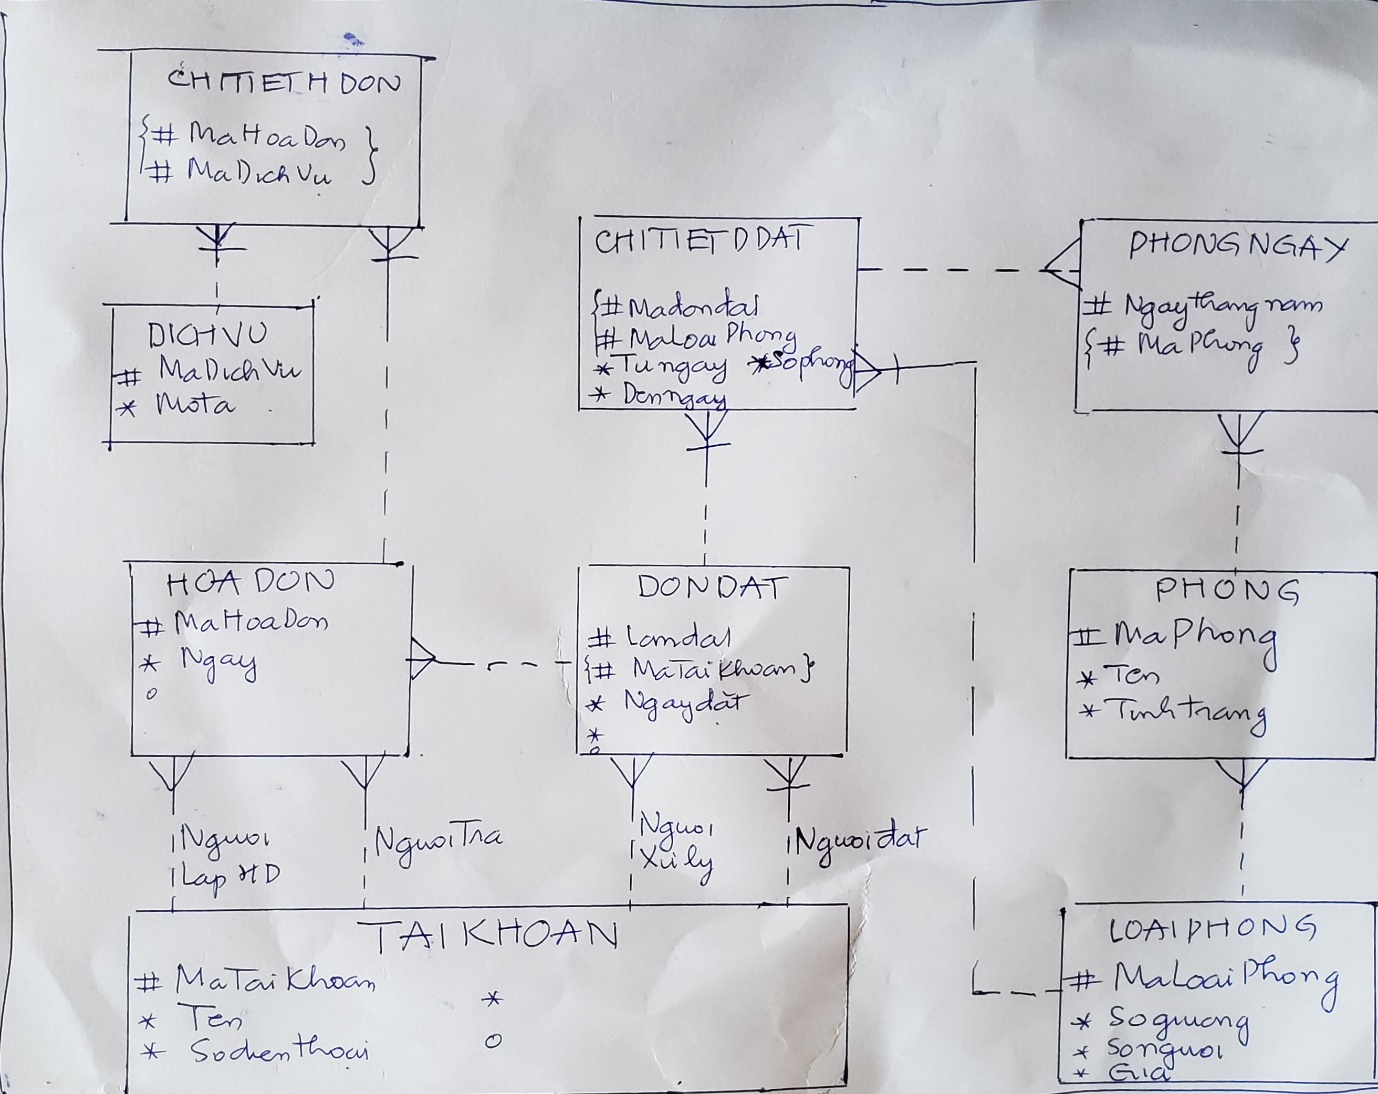 CHITIETHDON
{# MaHoaDon }
# MaDichVu
DICHVU
# MaDichVu
* Mota
CHITIETDDAT
{# Madondat
# MaLoaiPhong
* Tungay *Sophong
* Denngay
PHONGNGAY
# Ngaythangnam
{# MaPhong }
HOADON
# MaHoaDon
* Ngay
o
DONDAT
# Landat
{# MaTaiKhoan}
* Ngaydat
*
o
PHONG
# MaPhong
* Ten
* Tinhtrang
Nguoi
Lap HD
NguoiTra
Nguoi
Xuly
Nguoidat
TAIKHOAN
# MaTaiKhoan
* Ten *
* Sodienthoai o
LOAIPHONG
# MaLoaiPhong
* Sogiuong
* Songuoi
* Gia